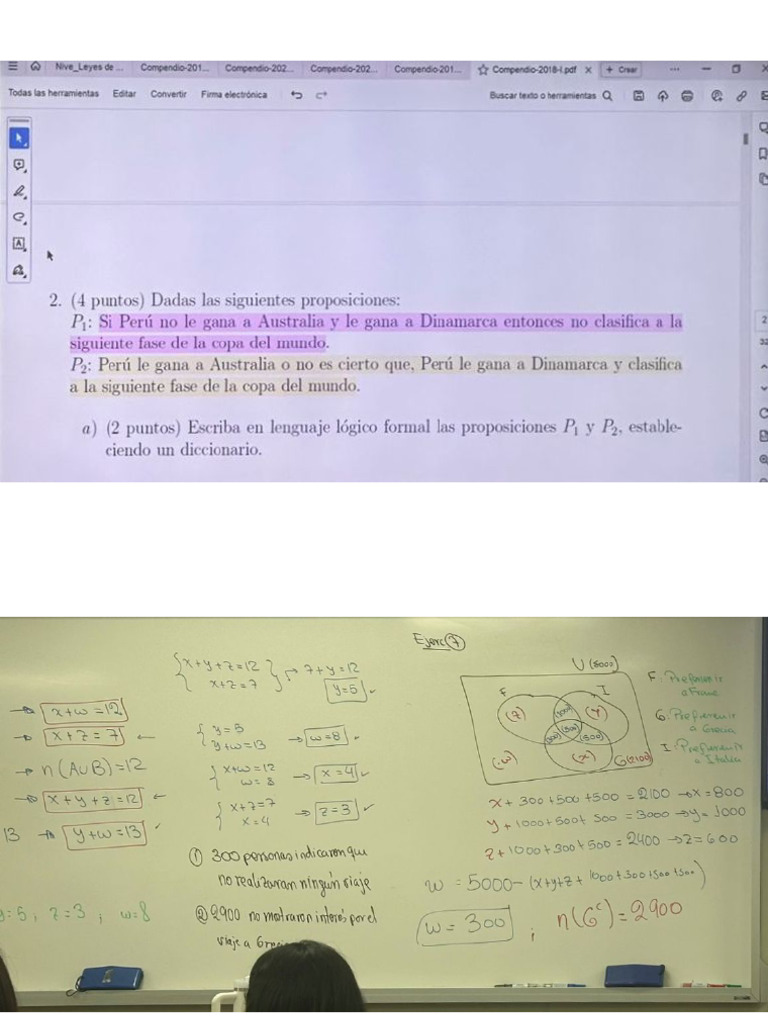 Nive_Leyes de ... Compendio-201... Compendio-202... Compendio-202... Compendio-201... Compendio-2018-I.pdf × + Crear ...
Todas las herramientas Editar Convertir Firma electrónica Buscar texto o herramientas
2. (4 puntos) Dadas las siguientes proposiciones:
P₁: Si Perú no le gana a Australia y le gana a Dinamarca entonces no clasifica a la
siguiente fase de la copa del mundo.
P₂: Perú le gana a Australia o no es cierto que, Perú le gana a Dinamarca y clasifica
a la siguiente fase de la copa del mundo.
a) (2 puntos) Escriba en lenguaje lógico formal las proposiciones P₁ y P₂, estable-
ciendo un diccionario.
2
32
x+w=12
x+z=7
n(A∪B)=12
x+y+z=12
13 y+w=13
y=5; z=3; w=8
{x+y+z=12
x+z=7} → 7+y=12
y=5
{y=5
y+w=13 → w=8
{x+w=12
w=8 → x=4
{x+z=7
x=4 → z=3
① 300 personas indicaron que
no realizaran ningún viaje
② 2900 no mostraron interés por el
viaje a
Ejerc ⑦
U (5000)
F I
(z) (1000) (y)
(300) (500) (500)
(w) (x) G(2100)
F: Prefieren ir
a Franc
G: Prefieren ir
a Grecia
I: Prefieren ir
a Italia
x+300+500+500=2100 → x=800
y+1000+500+500=3000 → y=1000
z+1000+300+500=2400 → z=600
w=5000-(x+y+z+1000+300+500+500)
w=300 ; n(Gᶜ)=2900